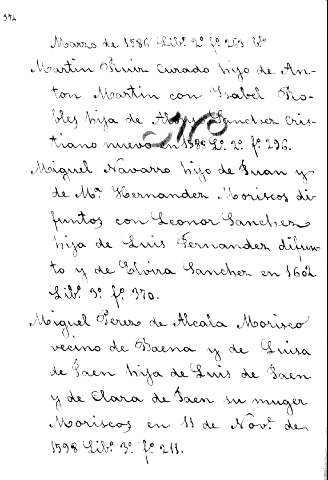 394
Marzo de 1586 Lib.º 2.º f.º 263 vto
Martin Ruiz Curado hijo de An-
ton Martin con Isabel Ro-
bles hija de Alo Sanchez Cris-
tiano nuevo en 1589 L.º 3.º f.º 296.
Miguel Navarro hijo de Juan y
de M.ª Hernandez Moriscos di-
funtos con Leonor Sanchez
hija de Luis Fernandez difun-
to y de Elvira Sanchez en 1602
Lib.º 3.º f.º 370.
Miguel Perez de Alcala Morisco
vecino de Baena y de Luisa
de Jaen hija de Luis de Jaen
y de Clara de Jaen su muger
Moriscos en 11 de Nov.e de
1598 Lib.º 3.º f.º 211.